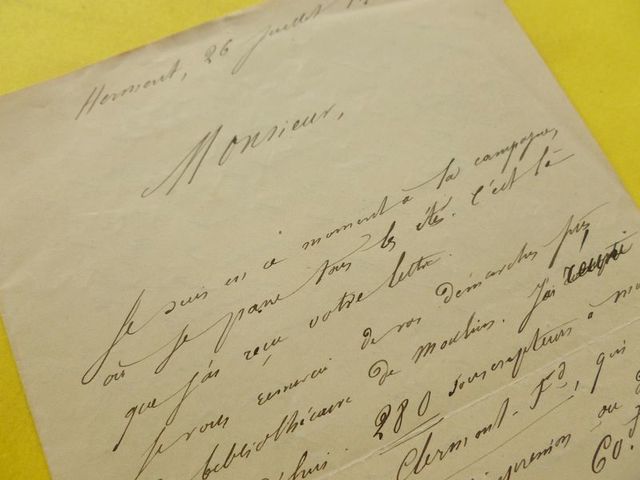 Hermont, 26 juillet
Monsieur,
Je suis en ce moment à la campagne,
où je passe tous les étés. C'est là
que j'ai reçu votre lettre.
Je vous remercie de vos démarches près
bibliothécaire de Moulins. J'ai réuni
280 souscripteurs à
Clermont-Fd, qui
impression ou
60.